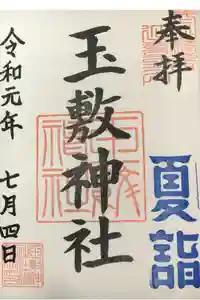 奉拝
夏詣
玉敷神社
令和元年 七月四日